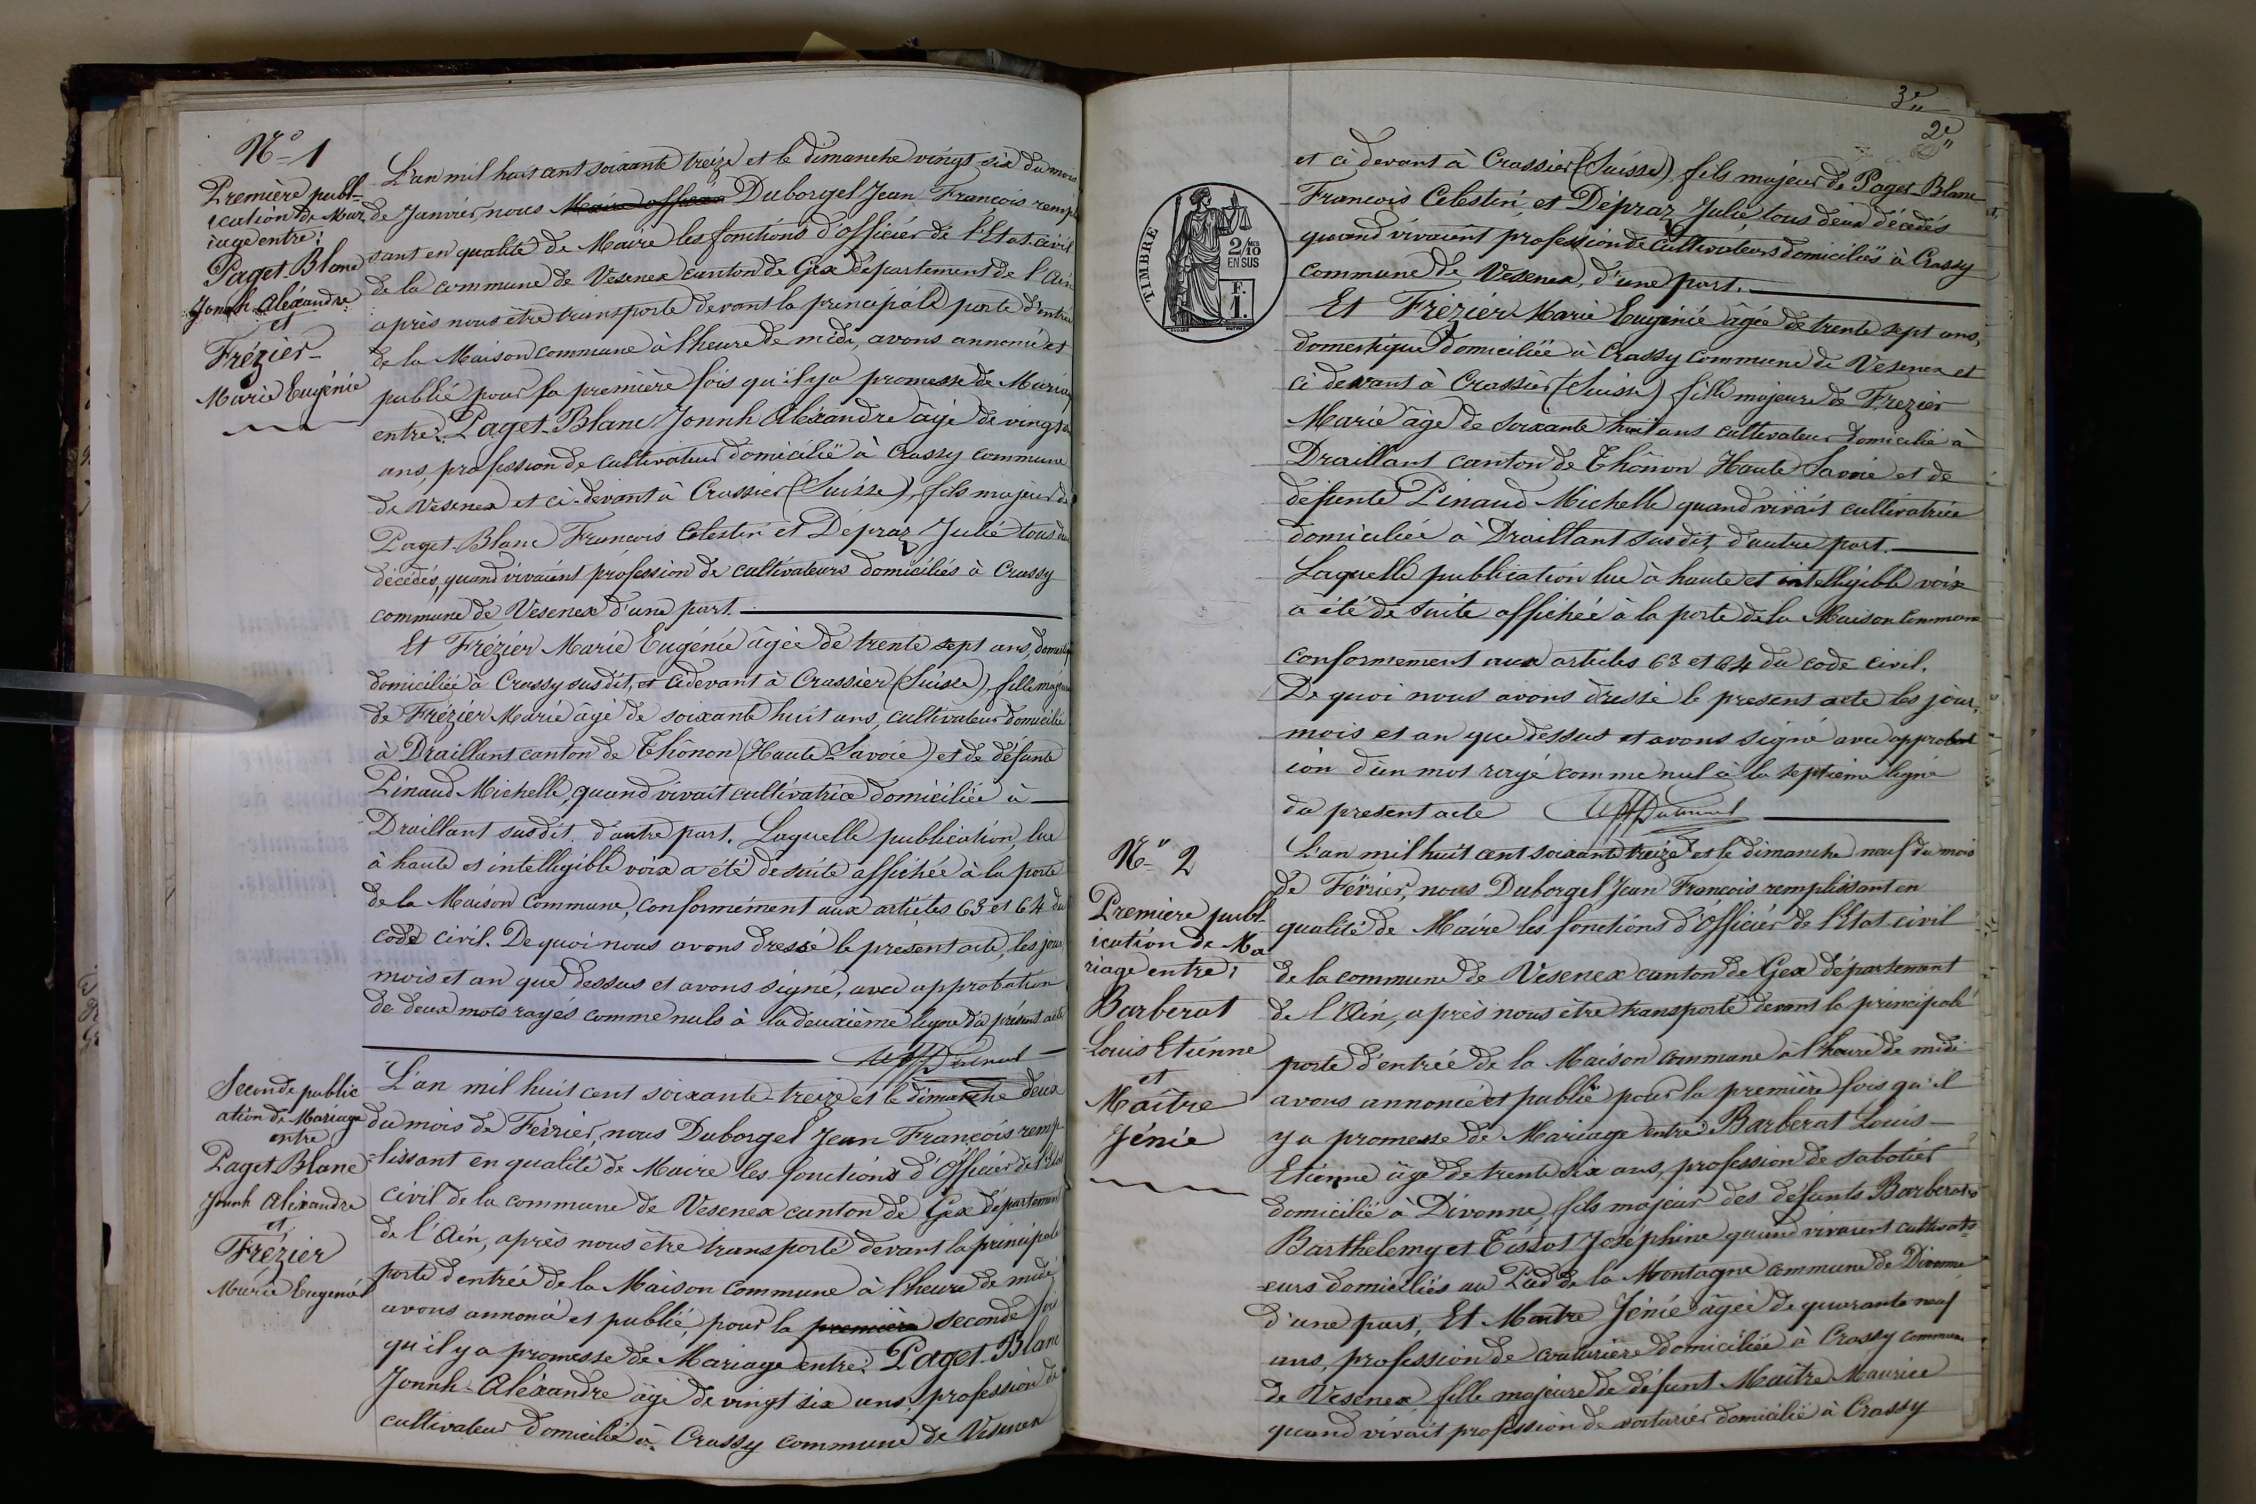 N° 1
Première publ-
ication de Mar
iage entre:
Paget Blanc
Jonnh Aléxandre
et
Frézier
Marie Eugénie
L'an mil huit cent soixante treize et le dimanche vingt-six du mois
de Janvier, nous Maire officier Duborgel Jean François rempl
sant en qualité de Maire les fonctions d'officier de l'Etat-civil
de la commune de Vesenex canton de Gex département de l'Ain
après nous être transporté devant la principale porte d'entrée
de la Maison commune à l'heure de midi, avons annoncé et
publié pour la première fois qu'il y a promesse de Mariage
entre: Paget-Blanc Jonnh Alexandre âgé de vingt
ans, profession de cultivateur domicilié à Crassy commune
de Vesenex et ci-devant à Crassier (Suisse), fils majeur de
Paget-Blanc François Celestin et Dépraz Julie tous deux
décédés, quand vivaient profession de cultivateurs domiciliés à Crassy
commune de Vesenex d'une part.
Et Frézier Marie Eugénie âgée de trente sept ans, domestique
domiciliée à Crassy susdit, et cidevant à Crassier (Suisse), fille majeure
de Frézier Marie âgé de soixante huit ans, cultivateur domicilié
à Draillant canton de Thônon (Haute-Savoie) et de défunte
Pinaud Michelle, quand vivait cultivatrice domiciliée à
Draillant susdit d'autre part. Laquelle publication, lue
à haute et intelligible voix a été de suite affichée à la porte
de la Maison Commune, conformément aux articles 63 et 64 du
code civil. De quoi nous avons dressé le présent acte, les jour
mois et an que dessus et avons signé, avec approbation
de deux mots rayés comme nuls à la deuxième ligne du présent acte
Seconde public
ation de Mariage
entre
Paget Blanc
Jonnh Aléxandre
et
Frézier
Marie Eugénie
L'an mil huit cent soixante-treize et le dimanche deux
du mois de Février, nous Duborgel Jean François remp-
lissant en qualité de Maire les fonctions d'Officier de l'Etat
civil de la commune de Vesenex canton de Gex département
de l'Ain, après nous être transporté devant la principale
porte d'entrée de la Maison commune à l'heure de midi
avons annoncé et publié, pour la première seconde fois
qu'il y a promesse de Mariage entre: Paget-Blanc
Jonnh-Aléxandre âgé de vingt six ans, profession de
cultivateur domicilié à Crassy commune de Vesenex
3e
2e
TIMBRE
2/10
EN SUS
F.
1.
et ci devant à Crassier (Suisse), fils majeur de Paget Blanc
François Celestin, et Dépraz Julie tous deux décédés
quand vivaient profession de cultivateurs domiciliés à Crassy
commune de Vesenex, d'une part.
Et Frézier Marie Eugénie âgée de trente sept ans,
domestique domiciliée à Crassy commune de Vesenex et
ci devant à Crassier (Suisse) fille majeure de Frezier
Marie âgé de soixante huit ans cultivateur domicilié à
Draillant canton de Thônon Haute Savoie et de
défunte Pinaud Michelle quand vivait cultivatrice
domiciliée à Draillant susdit, d'autre part.
Laquelle publication lue à haute et intelligible voix
a été de suite affichée à la porte de la Maison Commune
conformement aux articles 63 et 64 du code civil.
De quoi nous avons dressé le present acte les jour,
mois et an que dessus et avons signé avec approbat
ion d'un mot rayé comme nul à la septième ligne
du present acte
N° 2
Premiere publ
ication de Ma
riage entre;
Barberat
Louis Etienne
et
Maître
Jénie
L'an mil huit cent soixante treize et le dimanche neuf du mois
de Février, nous Duborgel Jean François remplissant en
qualité de Maire les fonctions d'Officier de l'Etat-civil
de la commune de Vesenex canton de Gex département
de l'Ain, après nous être transporté devant la principale
porte d'entrée de la Maison commune à l'heure de midi
avons annoncé et publié pour la première fois qu'il
y a promesse de Mariage entre Barberat Louis
Etienne âgé de trente six ans, profession de sabotier
domicilié à Divonne, fils majeur des défunts Barberat
Barthelemy et Tissot Josephine quand vivaient cultivat-
eurs domiciliés au Pied de la Montagne commune de Divonne
d'une part, Et Maître Jénie âgée de quarante neuf
ans, profession de couturière domiciliée à Crassy commune
de Vesenex fille majeure de défunt Maître Maurice
quand vivait profession de voiturier domicilié à Crassy